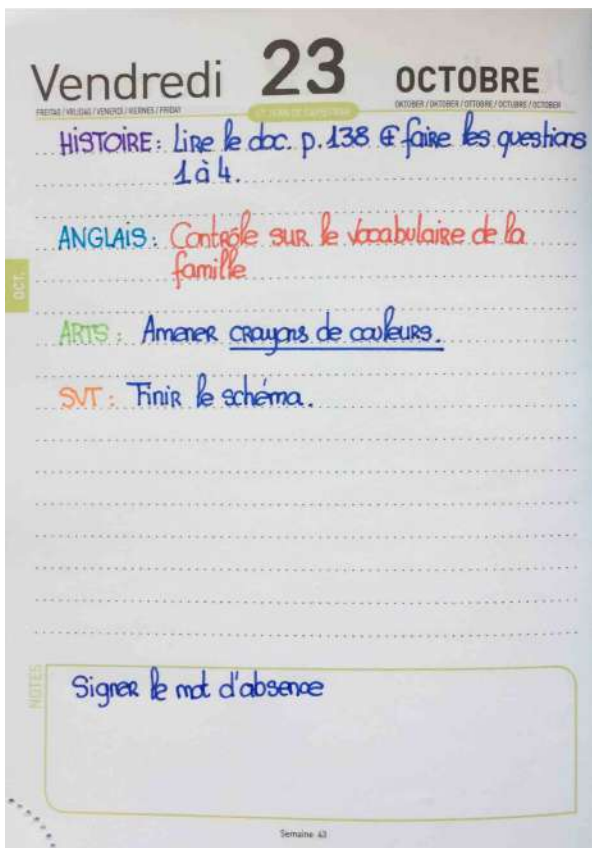 Vendredi 23 OCTOBRE
FREITAG / VRIJDAG / VENERDI / VIERNES / FRIDAY
OKTOBER / OKTOBER / OTTOBRE / OCTUBRE / OCTOBER
HISTOIRE : Lire le doc. p. 138 et faire les questions
1 à 4.
ANGLAIS : Contrôle sur le vocabulaire de la
famille
OCT.
ARTS : Amener crayons de couleurs.
SVT : Finir le schéma.
NOTES
Signer le mot d'absence
Semaine 43